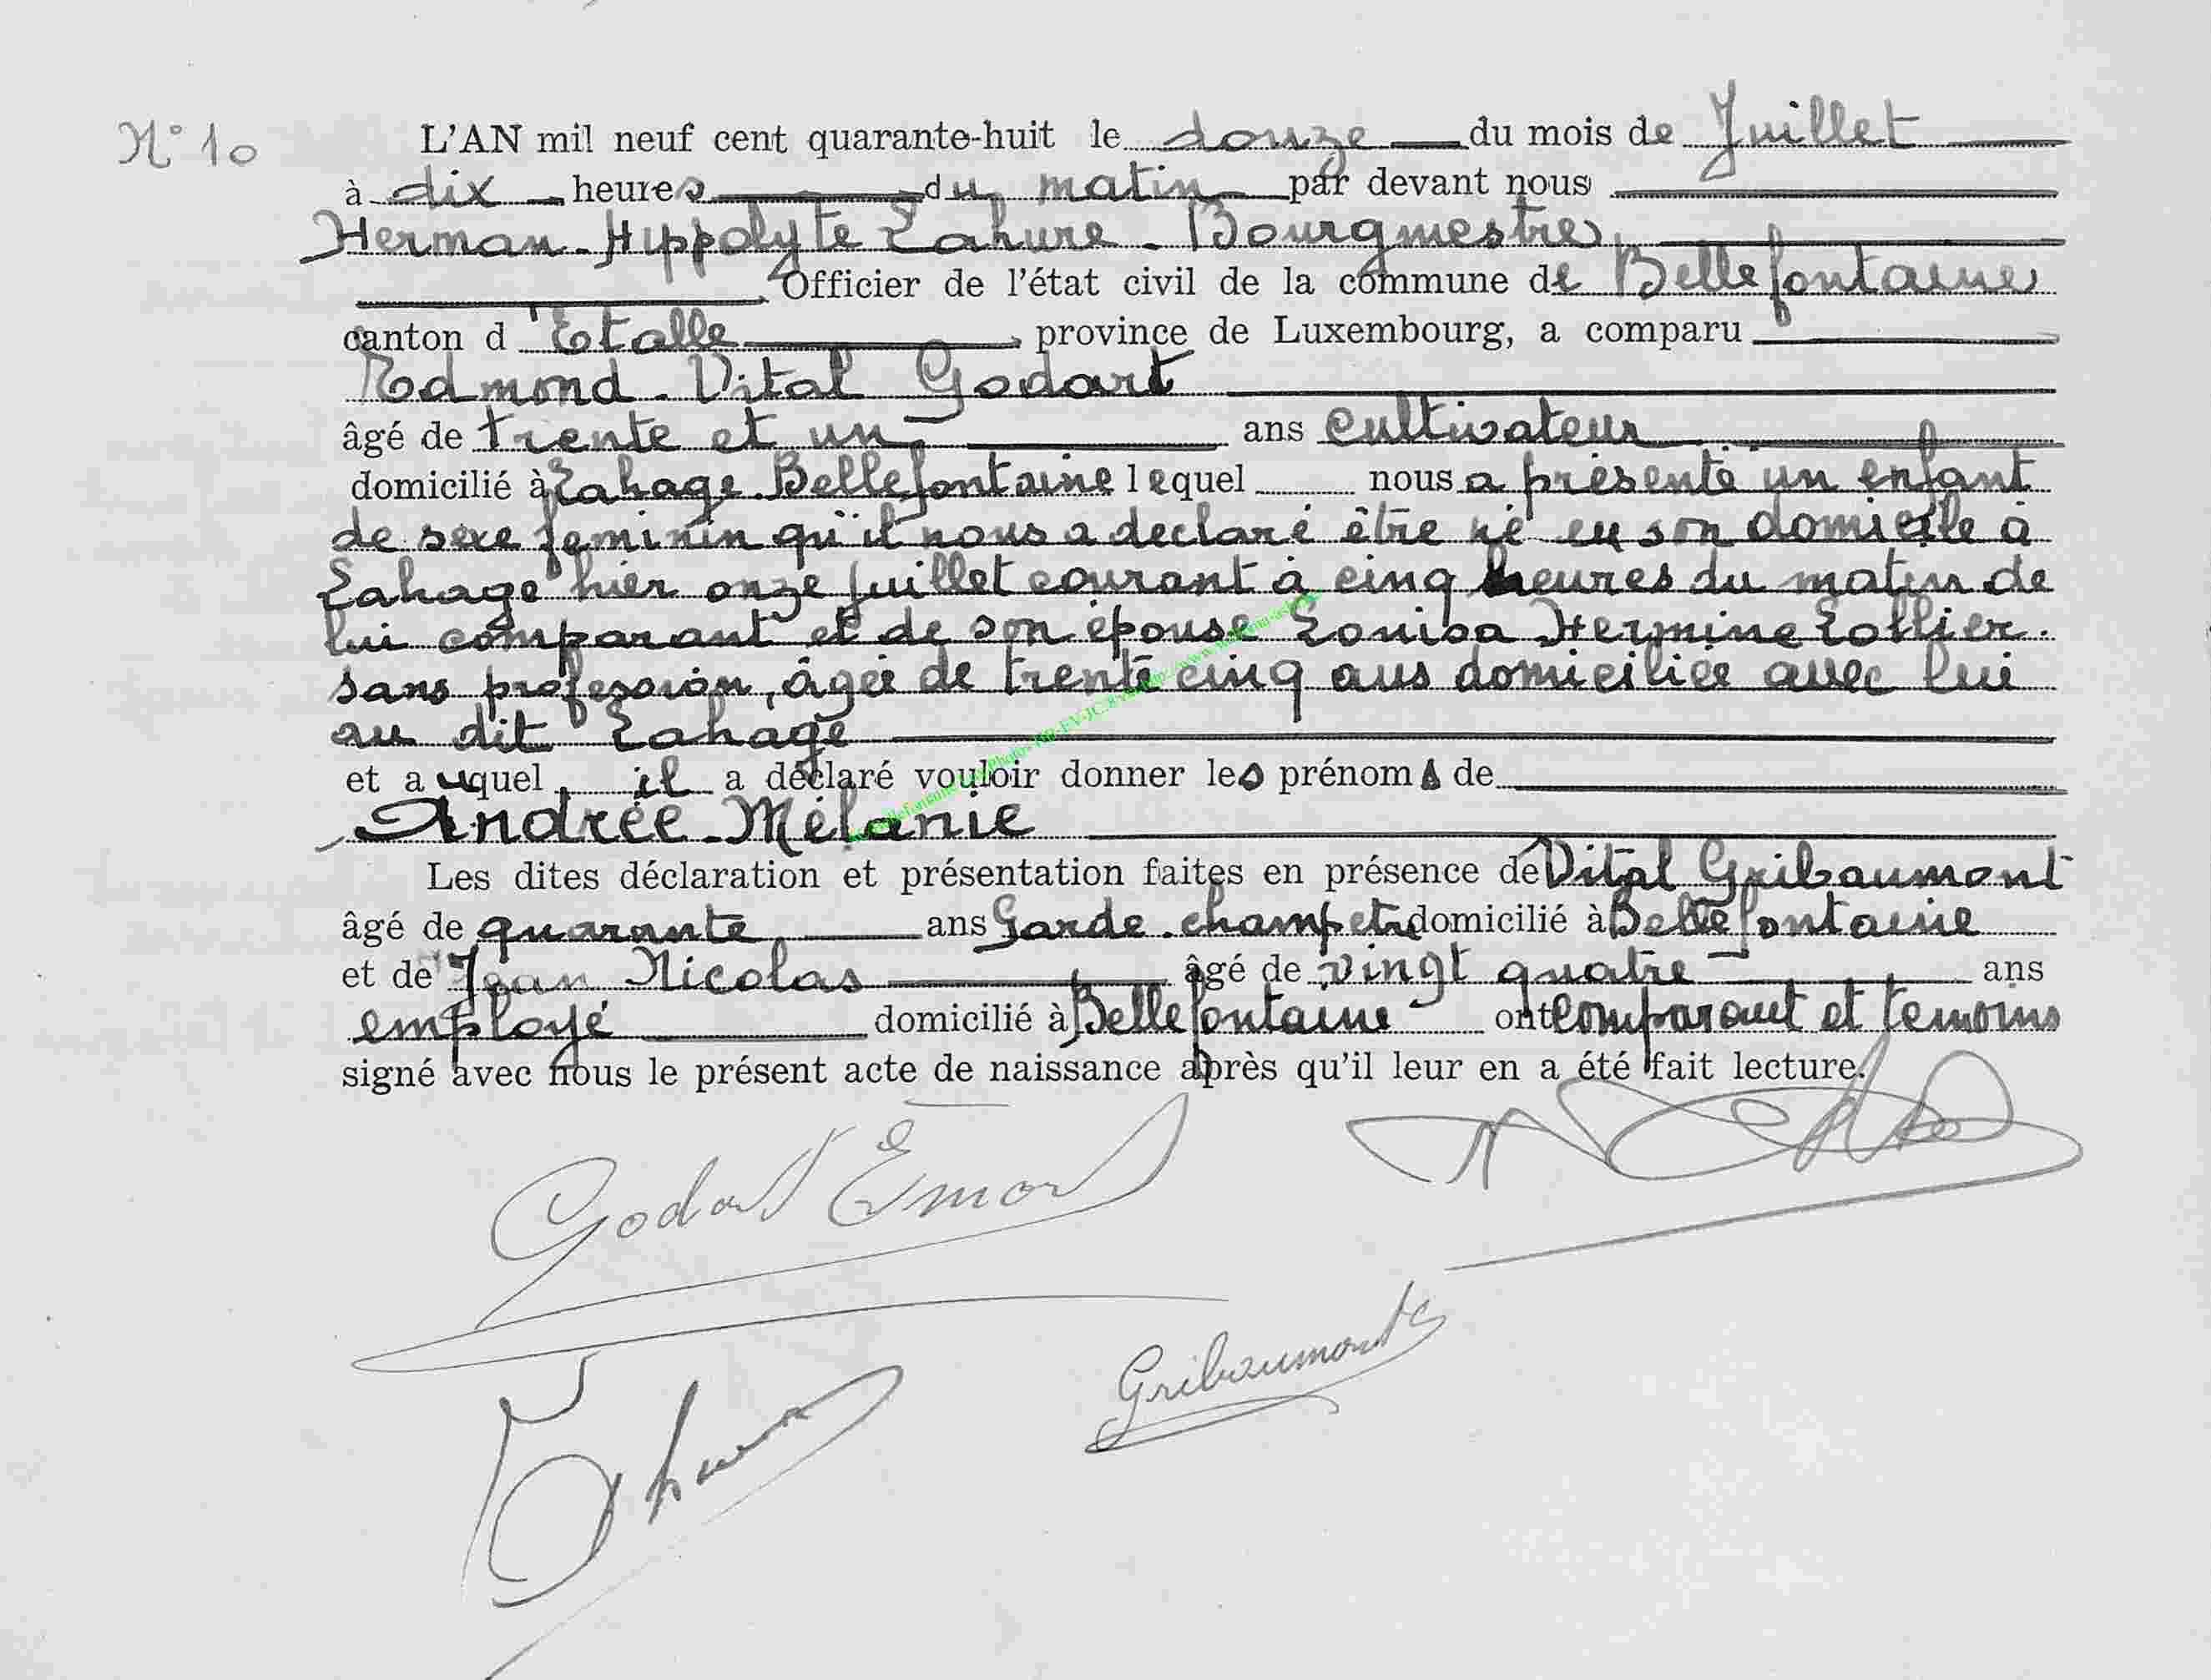 N° 10
L'AN mil neuf cent quarante-huit le douze du mois de Juillet
à dix heures du matin par devant nous
Herman-Hippolyte Lahure - Bourgmestre,
Officier de l'état civil de la commune de Bellefontaine
canton d'Etalle, province de Luxembourg, a comparu
Edmond-Vital Godart
âgé de trente et un ans cultivateur
domicilié à Lahage Bellefontaine lequel nous a présenté un enfant
de sexe feminin qu'il nous a declaré être né en son domicile à
Lahage hier onze juillet courant à cinq heures du matin de
lui comparant et de son épouse Louisa Hermine Lollier.
sans profession, âgée de trente cinq ans domiciliée avec lui
au dit Lahage
et auquel il a déclaré vouloir donner les prénoms de
Andrée-Mélanie
Les dites déclaration et présentation faites en présence de Vital Gribaumont
âgé de quarante ans Garde-champetre domicilié à Bellefontaine
et de Jean Nicolas âgé de vingt quatre ans
employé domicilié à Bellefontaine ont comparant et temoins
signé avec nous le présent acte de naissance après qu'il leur en a été fait lecture.
Godart Edmond
Gribaumont
Lahure